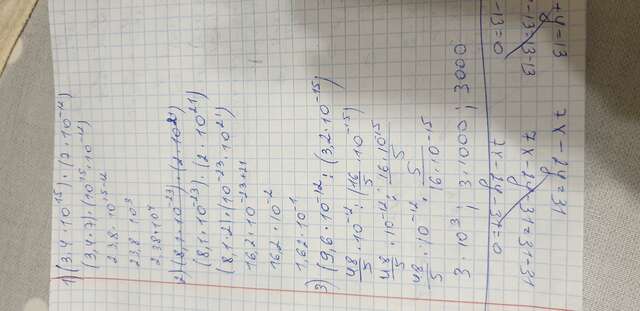 1) (3,4 · 10¹⁵) · (7 · 10⁻¹²)
(3,4 · 7) · (10¹⁵ · 10⁻¹²)
23,8 · 10¹⁵⁻¹²
23,8 · 10³
2,38 · 10⁴
2) (8,1 · 10⁻²³) · (2 · 10²¹)
(8,1 · 10⁻²³) · (2 · 10²¹)
(8,1 · 2) · (10⁻²³ · 10²¹)
16,2 · 10⁻²³⁺²¹
16,2 · 10⁻²
1,62 · 10⁻¹
3) (9,6 · 10⁻¹²) : (3,2 · 10⁻¹⁵)
48/5 · 10⁻¹² : (16/5 · 10⁻¹⁵)
48/5 · 10⁻¹² : 16 · 10¹⁵/5
48/5 · 10⁻¹² · 5/16 · 10⁻¹⁵
3 · 10³ ; 3 · 1000 ; 3000
7x - 8y - 31 = 0
-13 = 0
7x - 8y - 31 = 31 - 31
- 13 = 13 - 13
7x - 8y = 31
+ y = 13